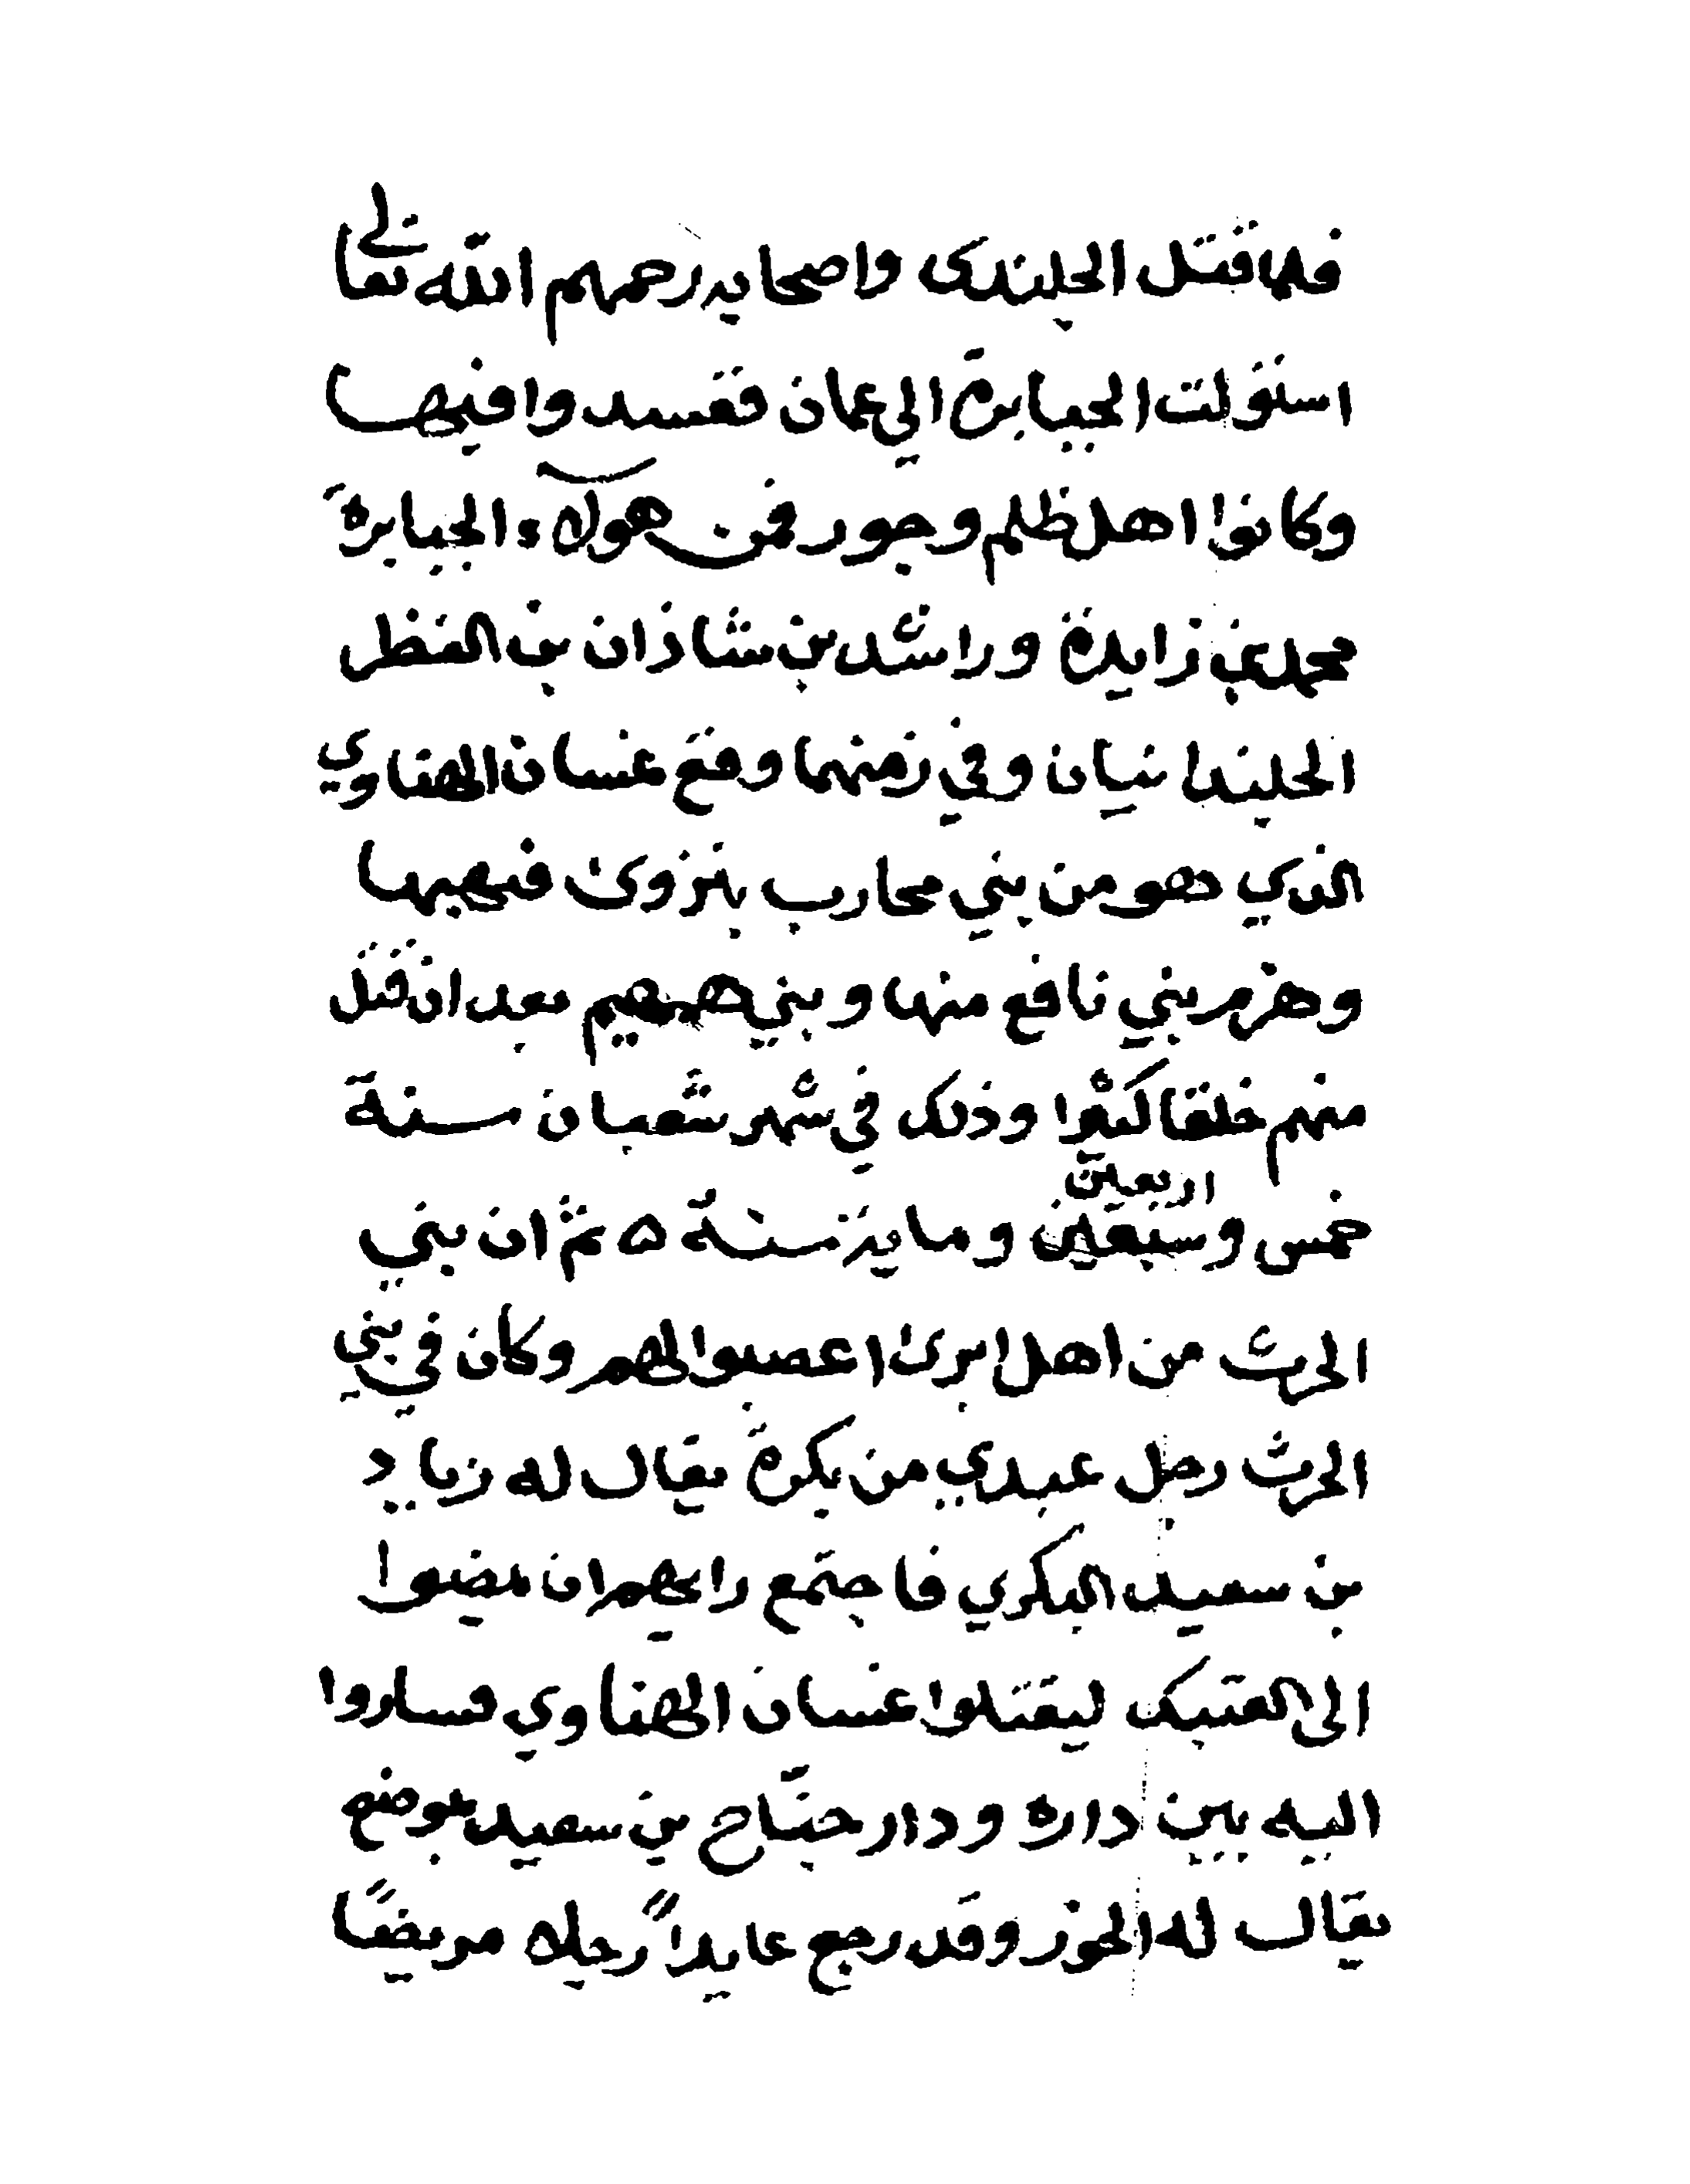 فلما قتل الجلندى واصحابه رحمهم الله تعالى
استولت الجبابرة الي عمان ففسدوا فيها
وكانوا اهل ظلم وجور فمن هولاء الجبابرة
محمد بن زايدة وراشد بن شاذان بن النظر
الجلندانيان وفي زمنهما وقع غسان الهناوي
الذي هو من بني محارب بنزوى فنهبها
وهزم بني نافع منها وبني هميم بعد ان قتل
منهم خلقا كثيرا وذلك في شهر شعبان سنة
اربعين
خمس وسبعين وماية سنة ه ثم ان بني
الحرث من اهل ابرى اعصبوا لهم وكان في بني
الحرث رجل عبدي من بكرة يقال له زياد
بن سعيد البكري فاجتمع رايهم ان مضوا
الى العتيك ليقتلوا غسان الهناوي فساروا
اليه بين داره ودار جنّاح بن سعيد بموضع
يقال له الخوز وقد رجع عايداً رجلا مريضًا